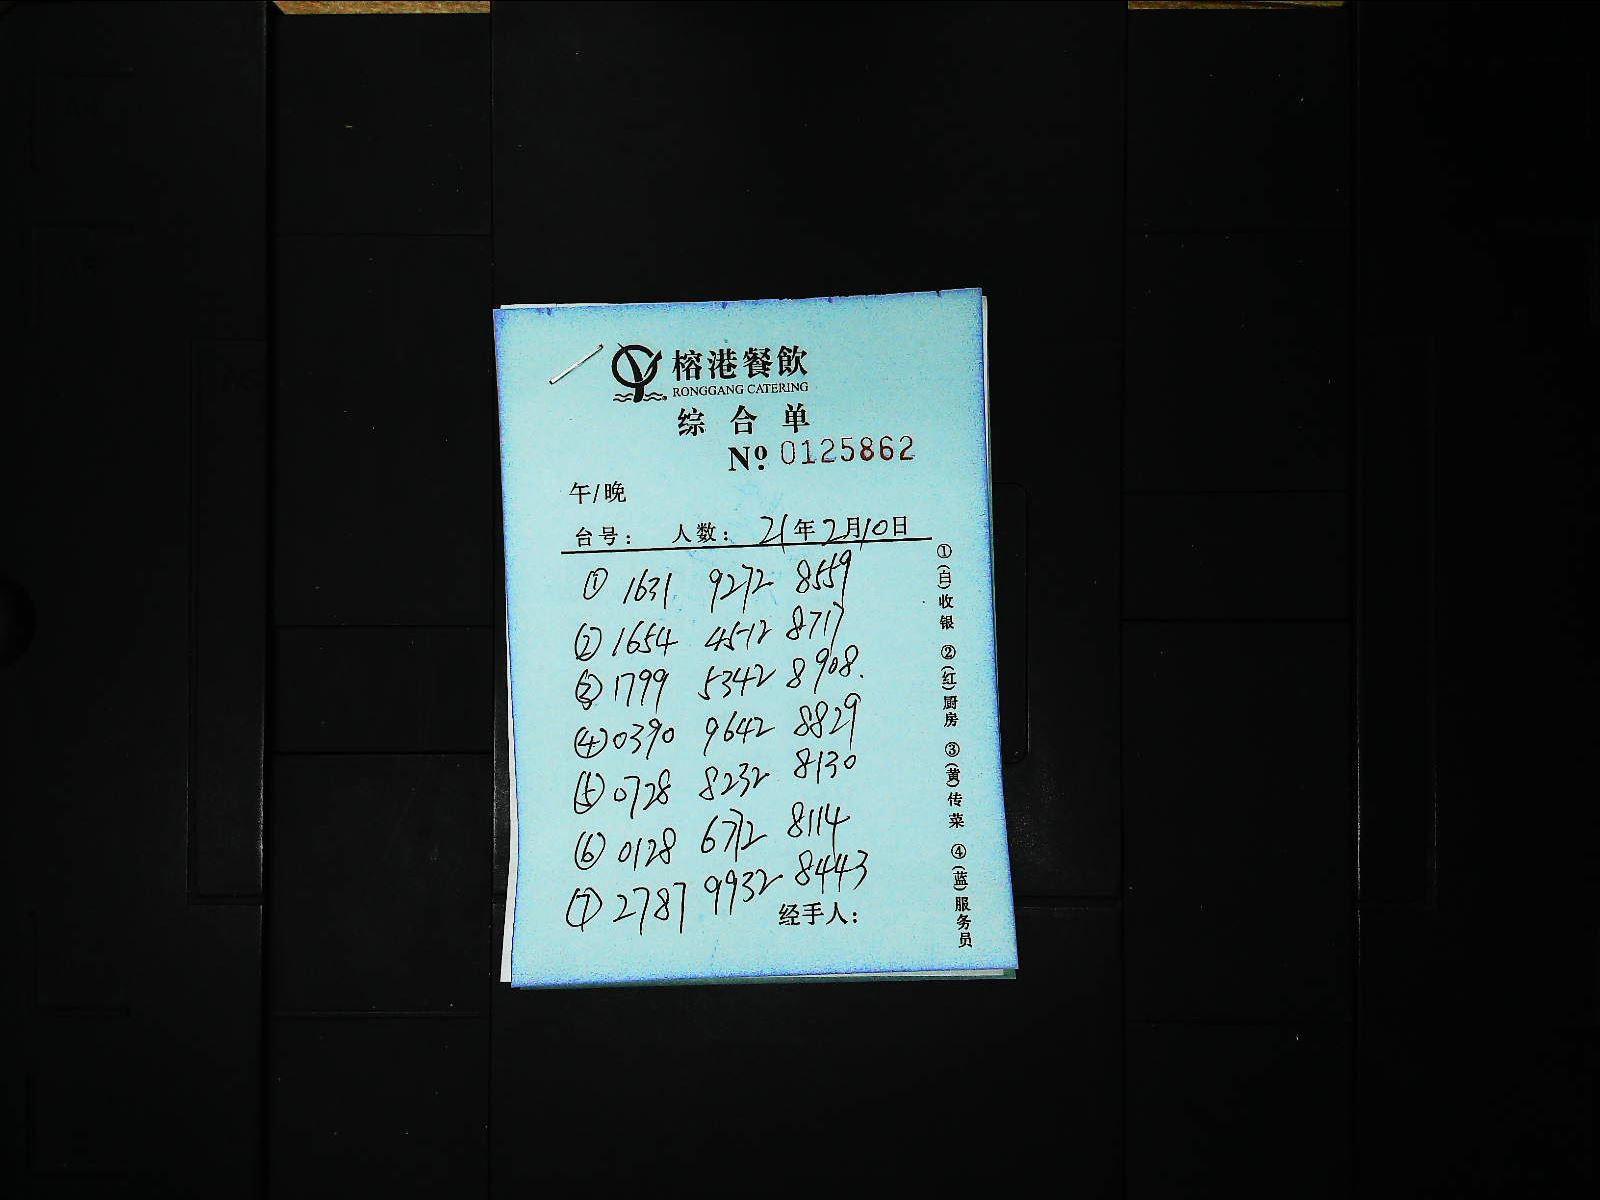 榕港餐飲
RONGGANG CATERING
综合单
Nº 0125862
午/晚
台号: 人数: 21年2月10日
① 1631 9272 8559
② 1654 4512 8717
③ 1799 5342 8908.
④ 0390 9642 8829
⑤ 0728 8232 8130
⑥ 0128 6772 8114
⑦ 2787 9932 8443
经手人:
①(白)收银 ②(红)厨房 ③(黄)传菜 ④(蓝)服务员